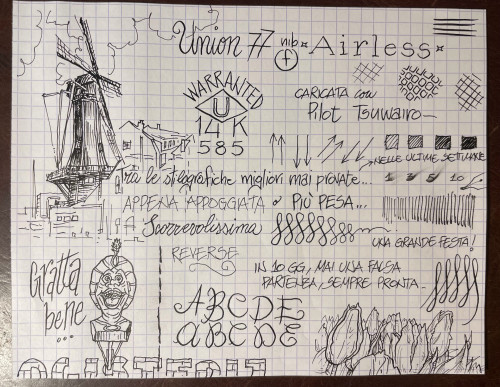 Union 77 nib f Airless
WARRANTED
U
14 K
585
CARICATA con
Pilot Tsuwairo
NELLE ULTIME SETTIMANE
Tra le stilografiche migliori mai provate...
1 3 5 10
APPENA APPOGGIATA o PIÙ PESA...
Scorrevolissima
UNA GRANDE FESTA!
REVERSE
Gratta
bene
...
IN 10 GG, MAI UNA FALSA
PARTENZA, SEMPRE PRONTA
ABCDE
ABCDE